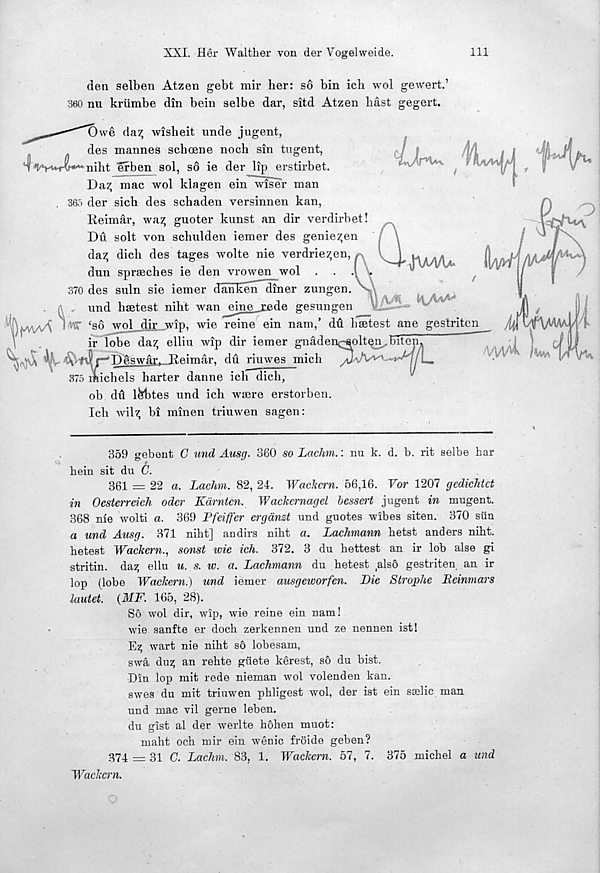 XXI. Hêr Walther von der Vogelweide. 111
den selben Atzen gebt mir her: sô bin ich wol gewert.’
360 nu krümbe dîn bein selbe dar, sîtd Atzen hâst gegert.
Owê daȥ wîsheit unde jugent,
des mannes schœne noch sîn tugent,
niht erben sol, sô ie der lîp erstirbet.
Daȥ mac wol klagen ein wîser man
365 der sich des schaden versinnen kan,
Reimâr, waȥ guoter kunst an dir verdirbet!
Dû solt von schulden iemer des genieȥen
daȥ dich des tages wolte nie verdrieȥen,
dun spræches ie den vrowen wol . . . .
370 des suln sie iemer danken dîner zungen.
und hætest niht wan eine rede gesungen
‘sô wol dir wîp, wie reine ein nam,’ dû hætest ane gestriten
ir lobe daȥ elliu wîp dir iemer gnâden solten biten.
Dêswâr, Reimâr, dû riuwes mich
375 michels harter danne ich dich,
ob dû lebtes und ich wære erstorben.
Ich wilȥ bî mînen triuwen sagen:
359 gebent C und Ausg. 360 so Lachm.: nu k. d. b. rit selbe har
hein sit du C.
361 = 22 a. Lachm. 82, 24. Wackern. 56,16. Vor 1207 gedichtet
in Oesterreich oder Kärnten. Wackernagel bessert jugent in mugent.
368 nie wolti a. 369 Pfeiffer ergänzt und guotes wîbes siten. 370 sün
a und Ausg. 371 niht] andirs niht a. Lachmann hetst anders niht.
hetest Wackern., sonst wie ich. 372. 3 du hettest an ir lob alse gi
stritin. daȥ ellu u. s. w. a. Lachmann du hetest alsô gestriten an ir
lop (lobe Wackern.) und iemer ausgeworfen. Die Strophe Reinmars
lautet. (MF. 165, 28).
Sô wol dir, wîp, wie reine ein nam!
wie sanfte er doch zerkennen und ze nennen ist!
Eȥ wart nie niht sô lobesam,
swâ duȥ an rehte güete kêrest, sô du bist.
Dîn lop mit rede nieman wol volenden kan.
swes du mit triuwen phligest wol, der ist ein sælic man
und mac vil gerne leben.
du gîst al der werlte hôhen muot:
maht och mir ein wênic fröide geben?
374 = 31 C. Lachm. 83, 1. Wackern. 57, 7. 375 michel a und
Wackern.